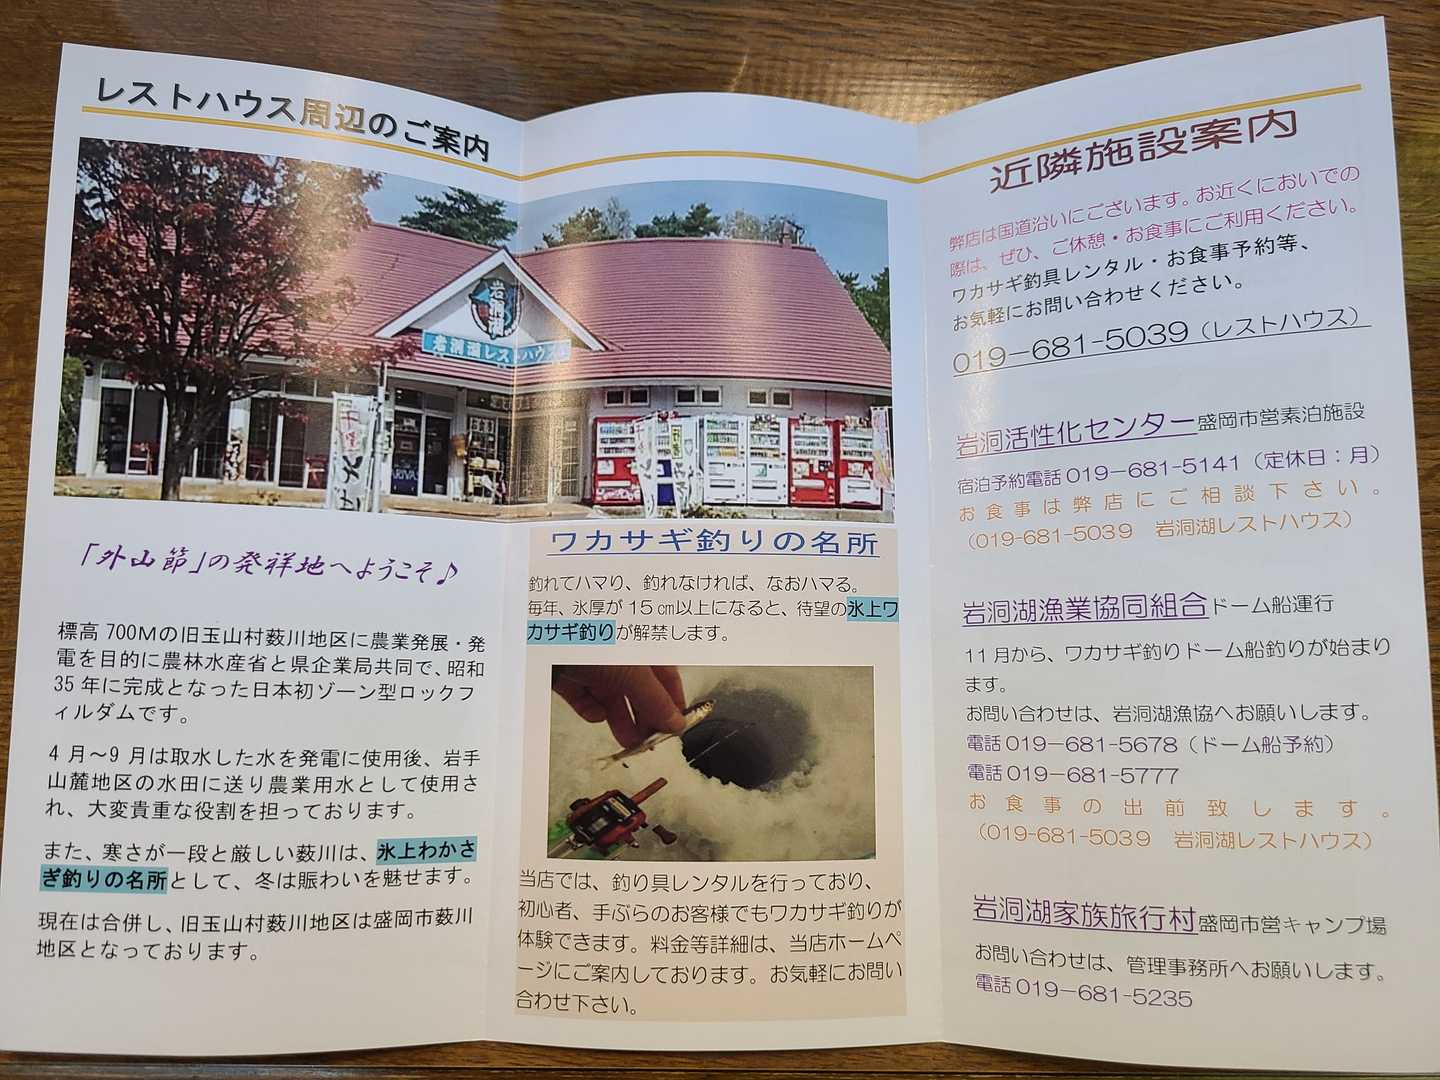 レストハウス周辺のご案内
岩洞湖
岩洞湖レストハウス
「外山節」の発祥地へようこそ♪
標高 700Mの旧玉山村薮川地区に農業発展・発
電を目的に農林水産省と県企業局共同で、昭和
35 年に完成となった日本初ゾーン型ロックフ
ィルダムです。
4 月～9 月は取水した水を発電に使用後、岩手
山麓地区の水田に送り農業用水として使用さ
れ、大変貴重な役割を担っております。
また、寒さが一段と厳しい薮川は、氷上わかさ
ぎ釣りの名所として、冬は賑わいを魅せます。
現在は合併し、旧玉山村薮川地区は盛岡市薮川
地区となっております。
ワカサギ釣りの名所
釣れてハマり、釣れなければ、なおハマる。
毎年、氷厚が 15 ㎝以上になると、待望の氷上ワ
カサギ釣りが解禁します。
当店では、釣り具レンタルを行っており、
初心者、手ぶらのお客様でもワカサギ釣りが
体験できます。料金等詳細は、当店ホームペ
ージにご案内しております。お気軽にお問い
合わせ下さい。
近隣施設案内
弊店は国道沿いにございます。お近くにおいでの
際は、ぜひ、ご休憩・お食事にご利用ください。
ワカサギ釣具レンタル・お食事予約等、
お気軽にお問い合わせください。
019－681-5039（レストハウス）
岩洞活性化センター盛岡市営素泊施設
宿泊予約電話 019－681-5141（定休日：月）
お食事は弊店にご相談下さい。
（019-681-5039　岩洞湖レストハウス）
岩洞湖漁業協同組合ドーム船運行
11 月から、ワカサギ釣りドーム船釣りが始まり
ます。
お問い合わせは、岩洞湖漁協へお願いします。
電話 019－681-5678（ドーム船予約）
電話 019－681-5777
お食事の出前致します。
（019-681-5039　岩洞湖レストハウス）
岩洞湖家族旅行村盛岡市営キャンプ場
お問い合わせは、管理事務所へお願いします。
電話 019－681-5235